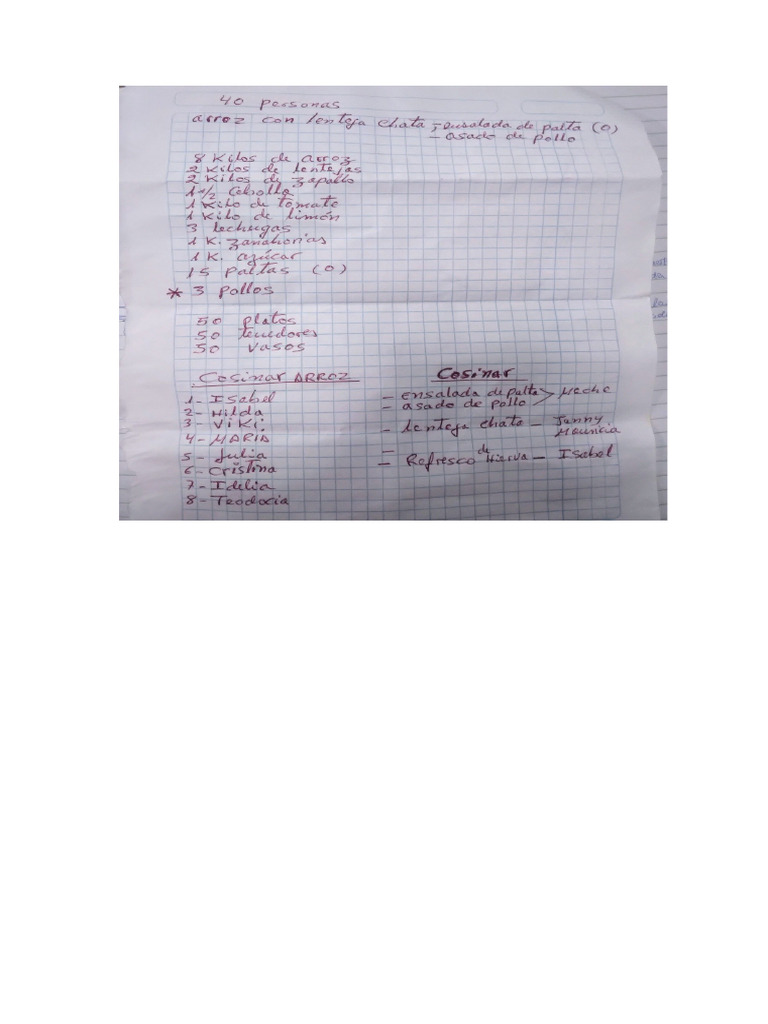 40 personas
arroz con lenteja chata, ensalada de palta (0)
- asado de pollo
8 Kilos de arroz
2 Kilos de lentejas
2 Kilos de zapallo
1 1/2 Cebolla
1 Kilo de tomate
1 Kilo de limón
3 lechugas
1 K. Zanahorias
1 K. azúcar
15 Paltas (0)
* 3 pollos
50 platos
50 tenedores
50 Vasos
Cosinar ARROZ
1- Isabel
2- Hilda
3- Viki
4- MARIA
5- Julia
6- Cristina
7- Idelia
8- Teodocia
Cosinar
- ensalada de palta > Meche
- asado de pollo
- lenteja chata - Janny
- Refresco de Hierva - Isabel